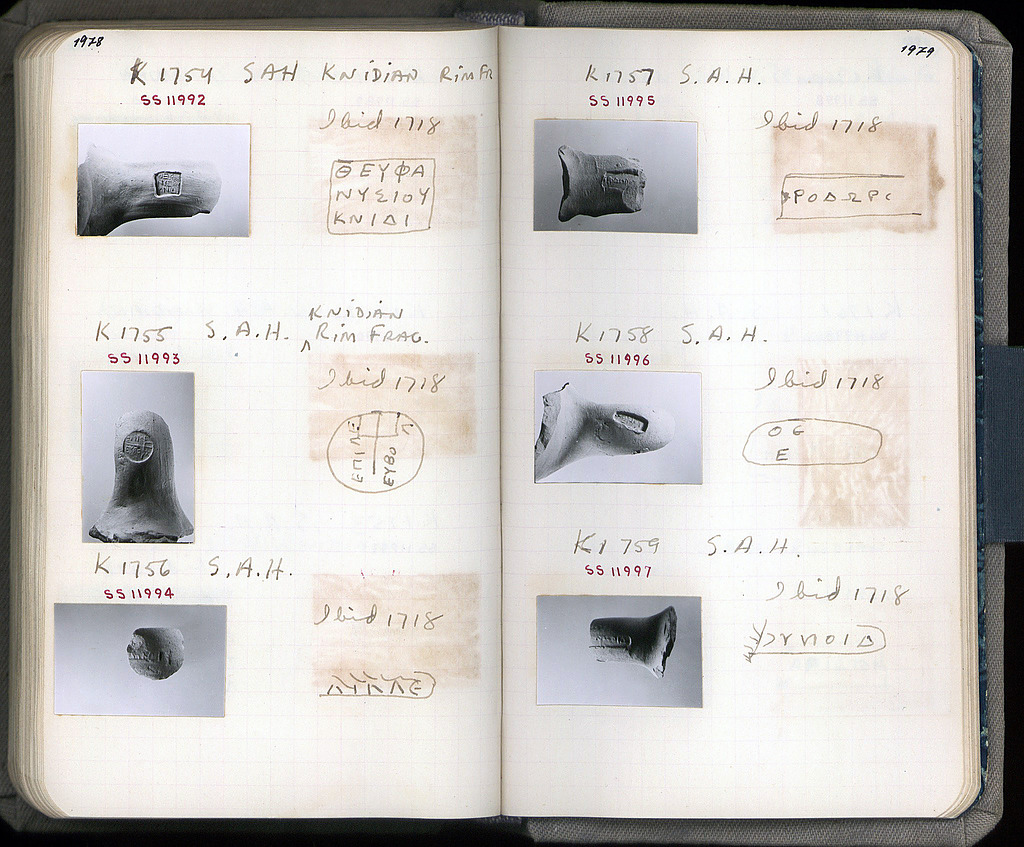 1978
K 1754 SAH KNIDIAN RIM FR
SS 11992
Ibid 1718
ΘΕΥΦΑ
ΝΥΣΙΟΥ
ΚΝΙΔΙ
K 1755 S.A.H. KNIDIAN RIM FRAG.
SS 11993
Ibid 1718
ΕΠΙΛΕ
ΕΥΒΟ
K 1756 S.A.H.
SS 11994
Ibid 1718
1979
K 1757 S.A.H.
SS 11995
Ibid 1718
ΡΟΔΩΡΟ
K 1758 S.A.H.
SS 11996
Ibid 1718
Ε
K 1759 S.A.H.
SS 11997
Ibid 1718